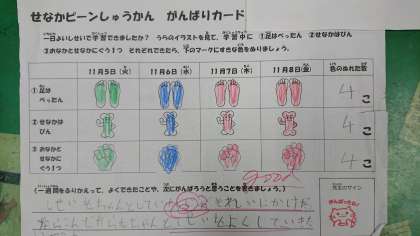 せなかピーンしゅうかん がんばりカード
一日よいしせいで学習できましたか？ うらのイラストを見て、学習中に ①足はぺったん ②せなかはぴん
③おなかとせなかにぐう1つ それぞれできたら、下のマークにすきな色をぬりましょう。
11月5日(火) 11月6日(水) 11月7日(木) 11月8日(金) 色のぬれた数
①足は ぺったん 4こ
②せなかは ぴん 4こ
③おなかと せなかに ぐう1つ 4こ
good
(一週間をふりかえって、よくできたことや、次にがんばろうと思うことを書きましょう。)
先生のサイン
がんばったね!